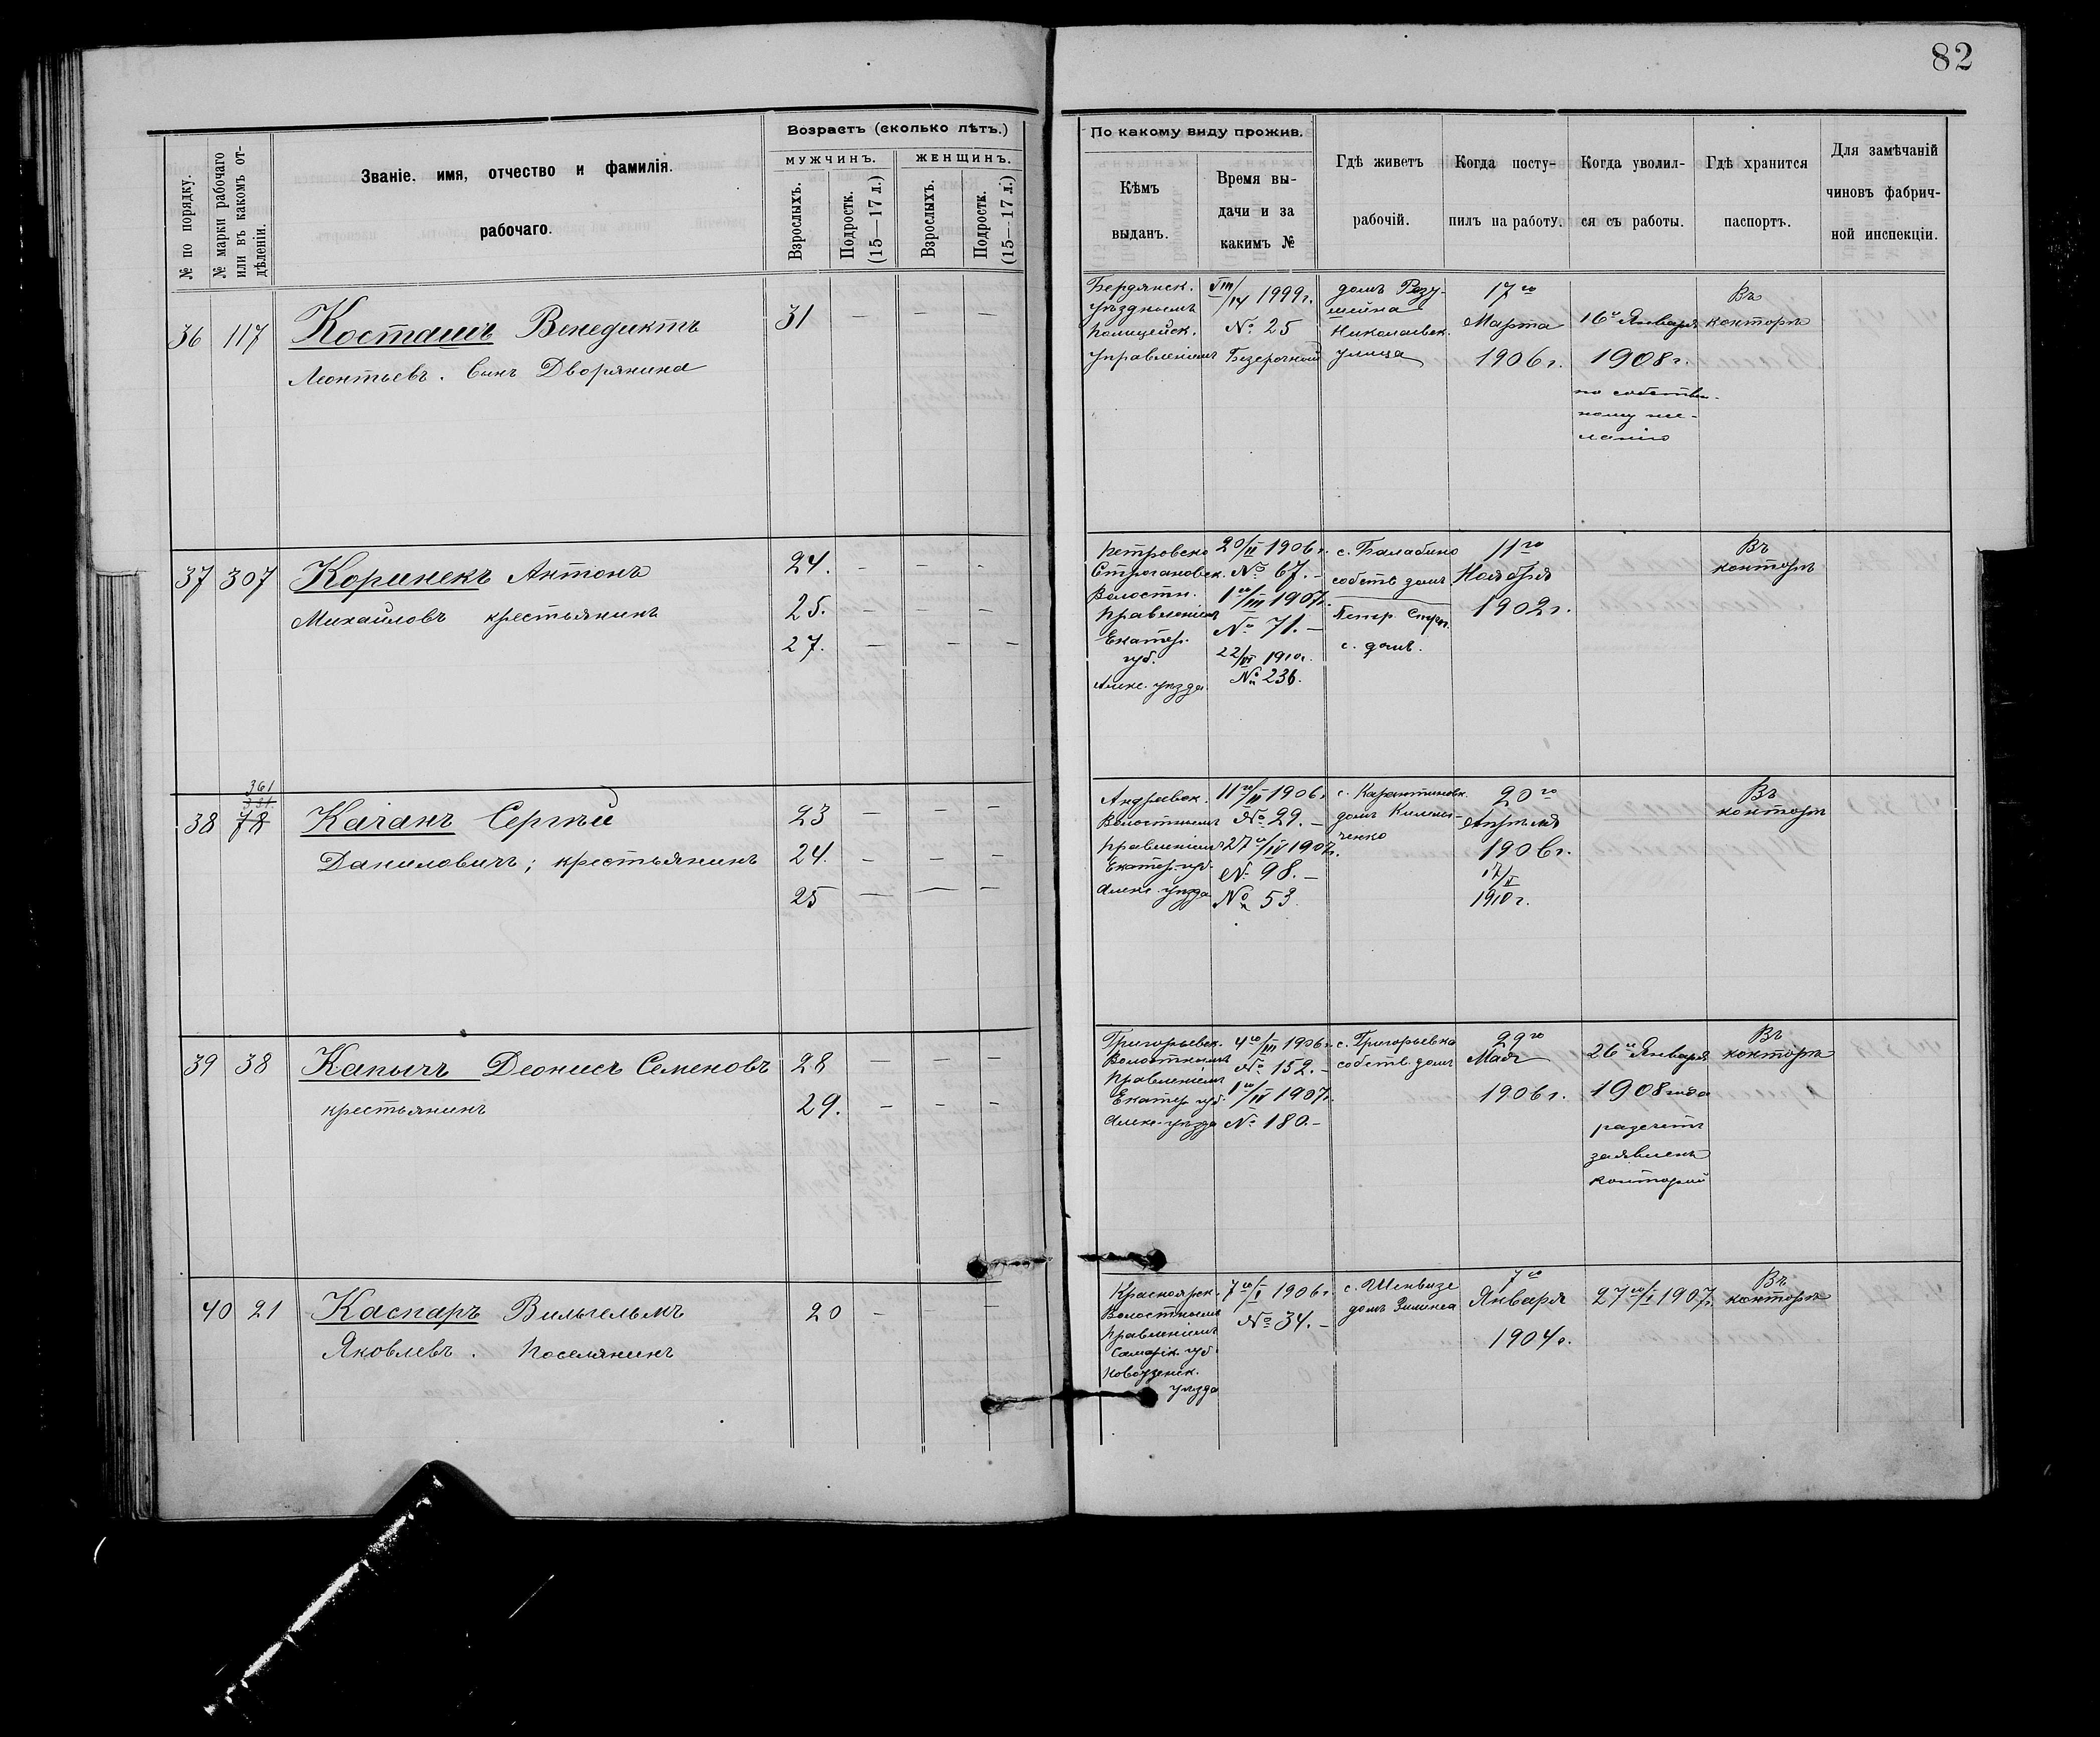 82
№ по порядку.
№ марки рабочаго
или въ какомъ от-
дѣленіи.
Званіе, имя, отчество и фамилія.
рабочаго.
Возрастъ (сколько лѣтъ.)
МУЖЧИНЪ.
ЖЕНЩИНЪ.
Взрослыхъ.
Подростк.
(15—17 л.)
Взрослыхъ.
Подростк.
(15—17 л.)
По какому виду прожив.
Кѣмъ
выданъ.
Время вы-
дачи и за
какимъ №
Гдѣ живетъ
рабочій.
Когда посту-
пилъ на работу.
Когда уволил-
ся съ работы.
Гдѣ хранится
паспортъ.
Для замѣчаній
чиновъ фабрич-
ной инспекціи.
36 117
Косташъ Венедиктъ
Леонтьевъ. Сынъ Дворянина
31 — — —
Бердянск.
уѣзднымъ
полицейск.
управленіемъ
VIII/14 1999 г.
№ 25
Безсрочный
домъ
Николаевск.
улица
17го
Марта
1906 г.
16го Января
1908 г.
по собствен-
ному же-
ланію
Въ
конторѣ
37 307
Коринекъ Антонъ
Михайловъ крестьянинъ
24. — — —
25. — — —
27. — — —
Петровско
Строгановск.
Волостн.
правленіемъ
Екатер.
губ.
Алекс. уѣзда
20/II 1906 г.
№ 67. —
1го/III 1907 г.
№ 71. —
22/VI 1910 г.
№ 236.
с. Балабино
собств. домъ
Петр. Строг.
с. домъ.
11го
Ноября
1902 г.
Въ
конторѣ
38
361
331.
78
Качанъ Сергѣй
Даниловичъ; крестьянинъ
23 — — —
24. — — —
25 — — —
Андреевск.
Волостнымъ
правленіемъ
Екатер. губ.
Алекс. уѣзда
11го/II 1906 г.
№ 29. —
27го/IV 1907 г.
№ 98. —
№ 53.
с. Карантиновк.
домъ
20го
Апрѣля
1906 г.
17/V
1910 г.
Въ
конторѣ
39 38
Капычъ Деонисъ Семеновъ
крестьянинъ
28 — — —
29. — — —
Григорьевск.
Волостнымъ
правленіемъ
Екатер. губ.
Алекс. уѣзда
4го/III 1906 г.
№ 152. —
1го/IV 1907 г.
№ 180. —
с. Григорьевка
собств. домъ
29го
Мая
1906 г.
26го Января
1908 года
разсчетъ
заявленъ
конторой
Въ
конторѣ
40 21
Каспаръ Вильгельмъ
Яковлевъ. Поселянинъ
20 — — —
Красноярск.
Волостнымъ
правленіемъ
Самарск. губ.
Новоузенск.
уѣзда
7го/I 1906 г.
№ 34. —
с. Шенвизе
домъ
7го
Января
1904 г.
27го/I 1907 г.
Въ
конторѣ